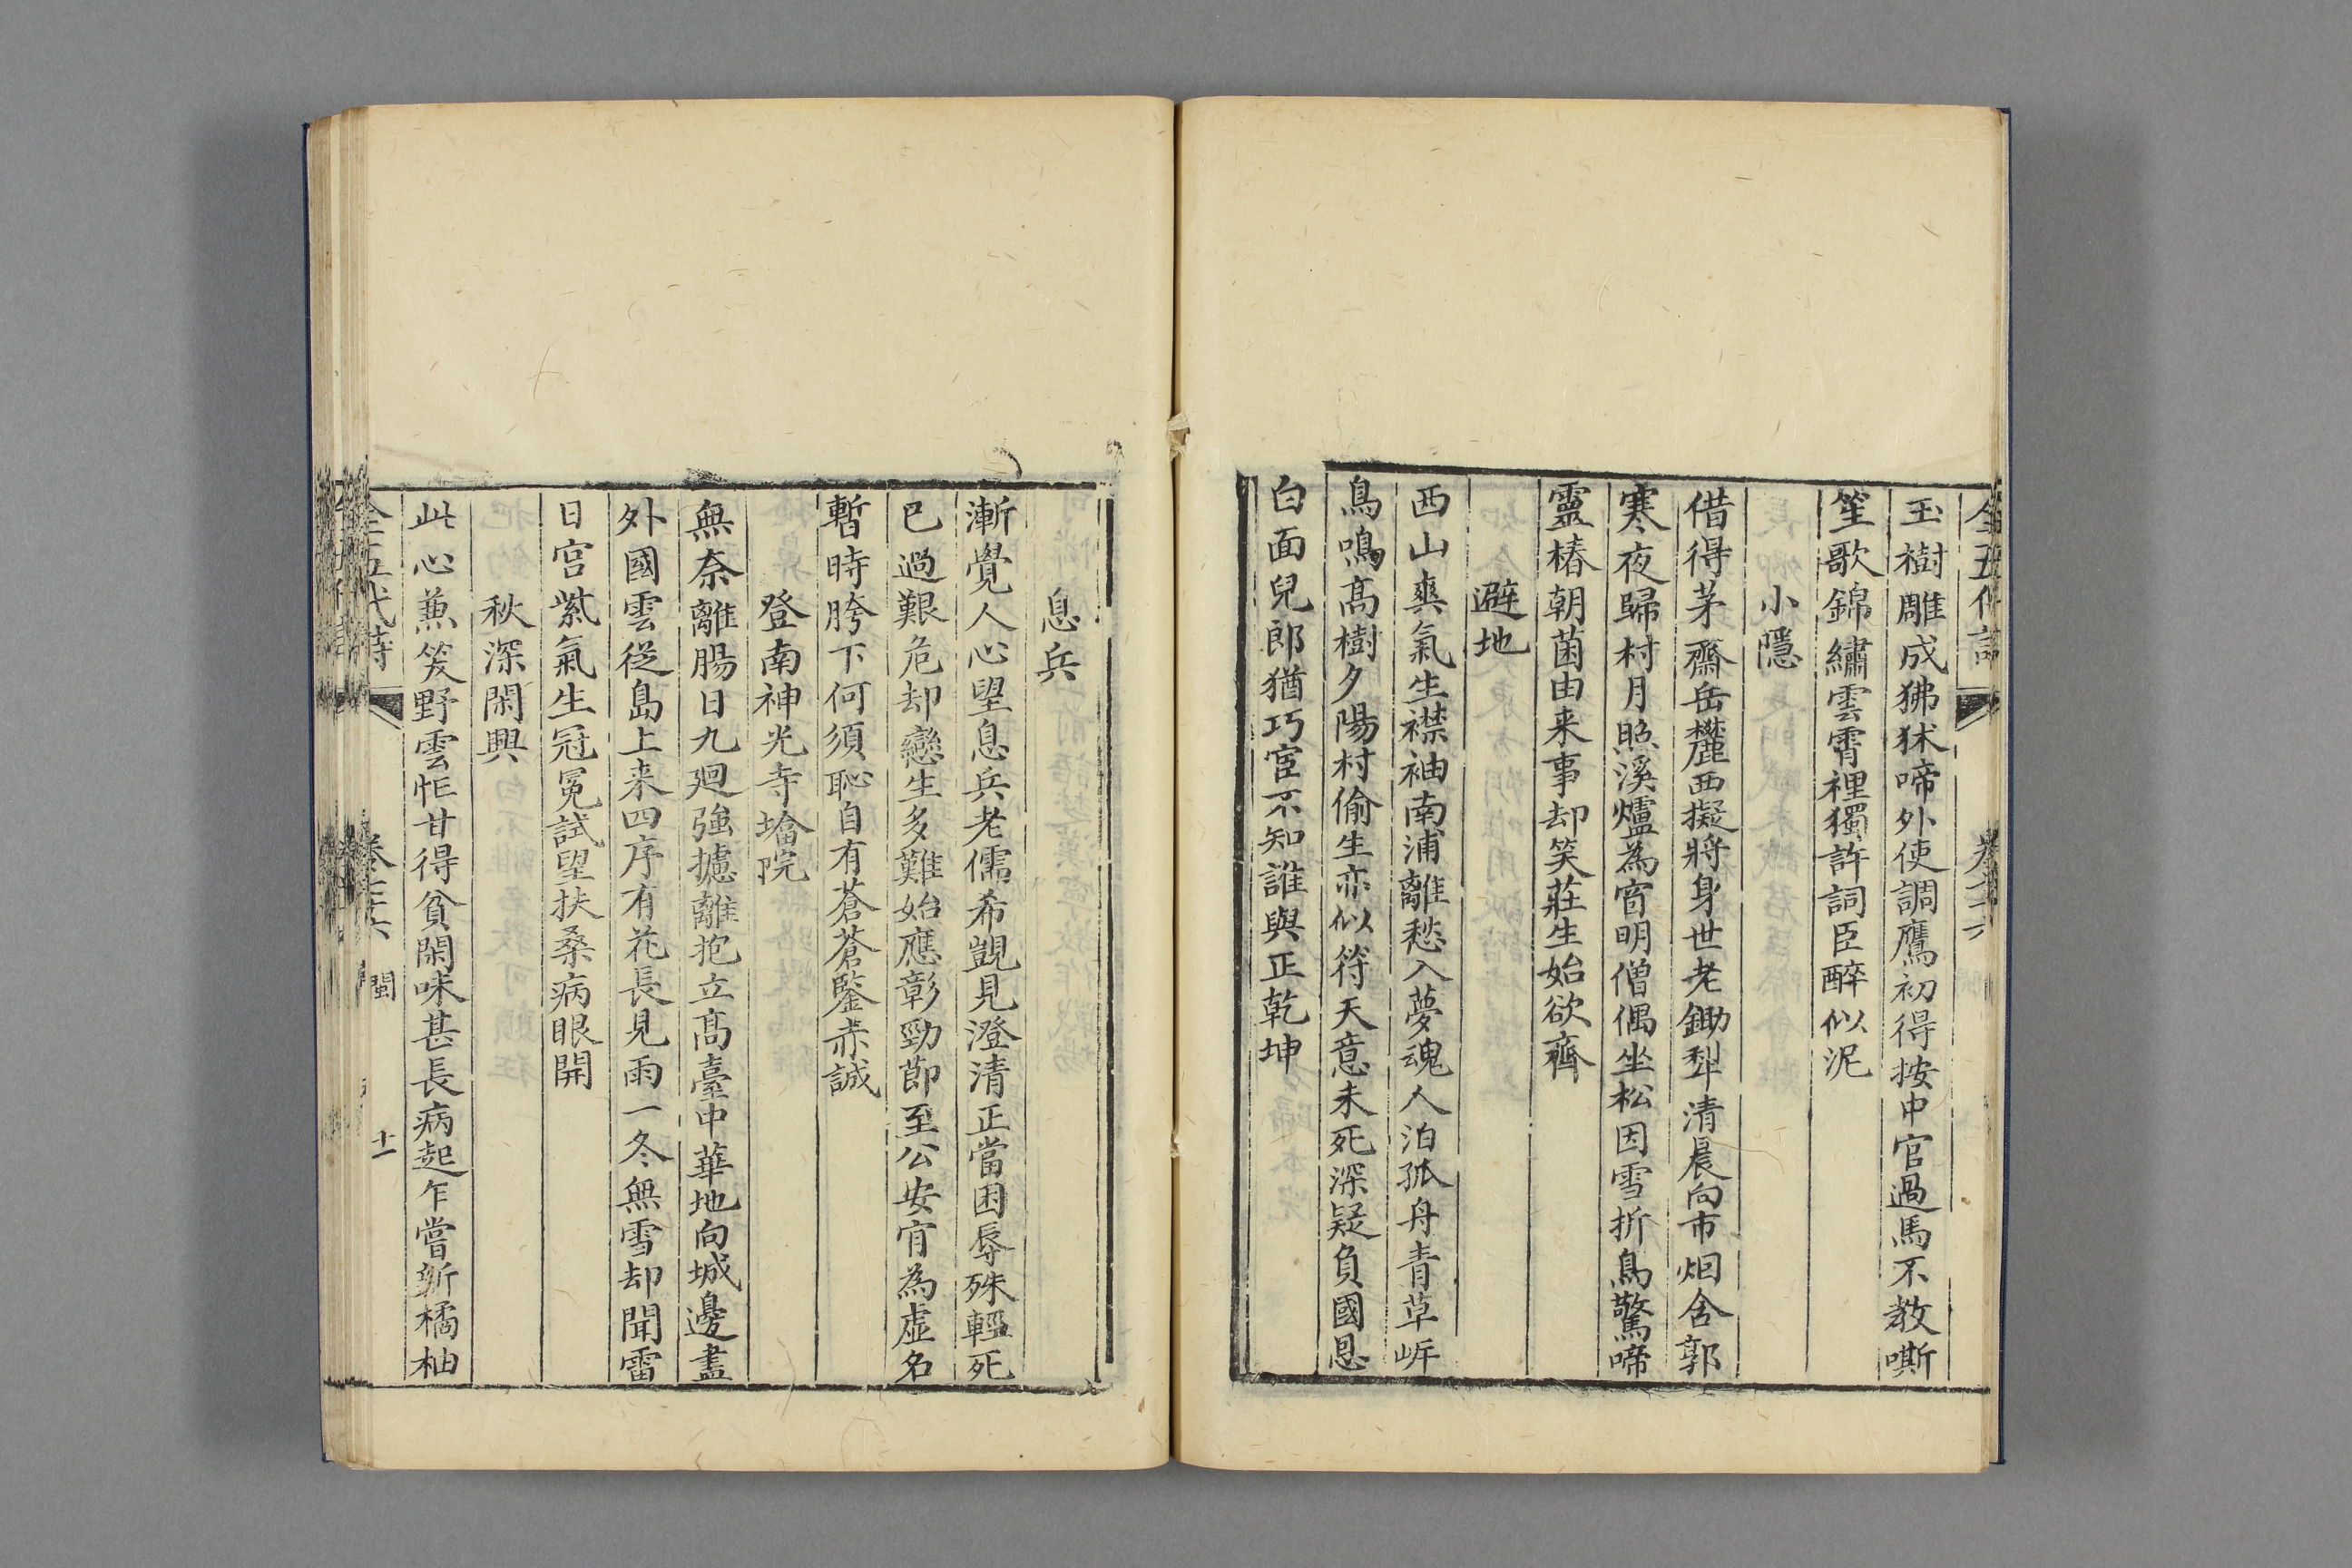 玉樹雕成狒狖啼外使調鷹初得按中官過馬不教嘶
笙歌錦繡雲霄裡獨許詞臣醉似泥
小隱
借得茅齋岳麓西擬將身世老鋤犁清晨向市烟含郭
寒夜歸村月照溪爐為窗明僧偶坐松因雪折鳥驚啼
靈椿朝菌由来事却笑莊生始欲齊
避地
西山爽氣生襟袖南浦離愁入夢魂人泊孤舟青草岸
鳥鳴高樹夕陽村偷生亦似符天意未死深疑負國恩
白面兒郎猶巧宦不知誰與正乾坤
息兵
漸覺人心望息兵老儒希覬見澄清正當困辱殊輕死
已過艱危却戀生多難始應彰勁節至公安肎為虛名
暫時胯下何須恥自有蒼蒼鑒赤誠
登南神光寺墖院
無奈離腸日九廻強攄離抱立高臺中華地向城邊盡
外國雲從島上来四序有花長見雨一冬無雪却聞雷
日宮紫氣生冠冕試望扶桑病眼開
秋深閑興
此心兼笑野雲忙甘得貧閑味甚長病起乍嘗新橘柚
全五代詩
閩
十一